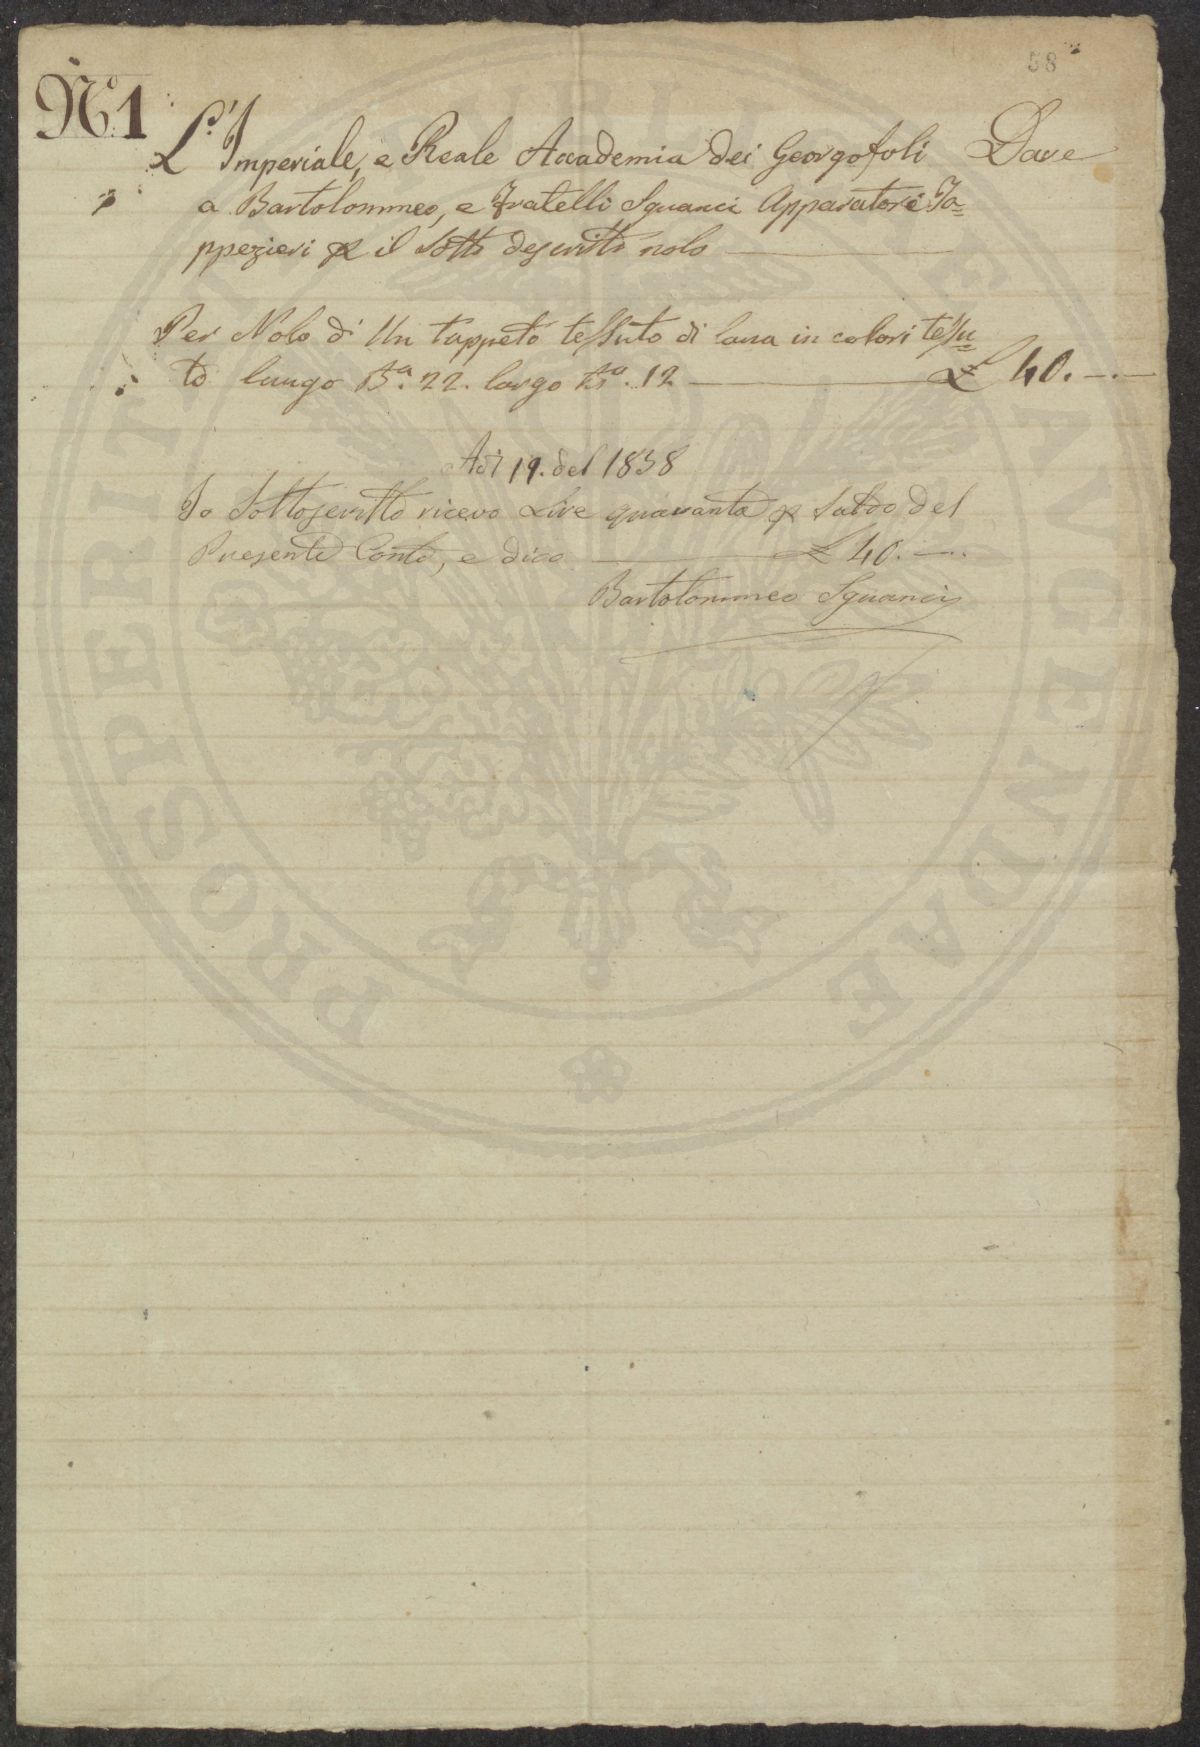 58
N.º 1
L'Imperiale, e Reale Accademia dei Georgofoli Dave
a Bartolommeo, e Fratelli Sguanci Apparatori Ta=
ppezieri p il Sotto descritto nolo
Per Nolo di Un tappeto tessuto di lana in colori tessu=
to lungo B.a 22. largo B.a 12 £ 40. — . —
Adi 19. del 1838
Io Sottoscritto ricevo Lire quaranta p Saldo del
Presente Conto, e dico £ 40. — ..
Bartolommeo Sguanci
PROSPERITATI PUBLICAE AUGENDAE